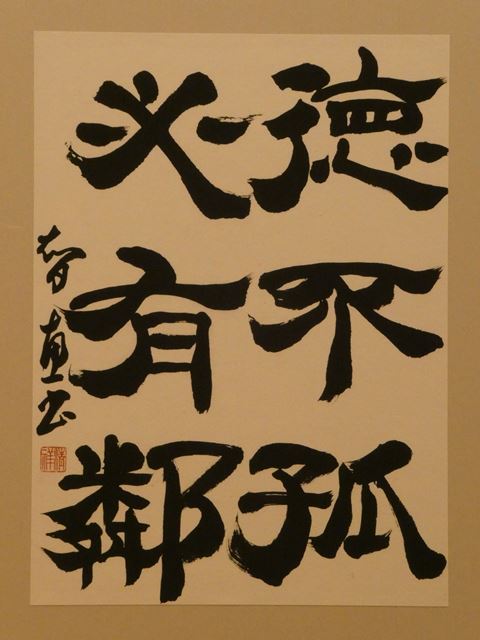 徳不孤
必有鄰